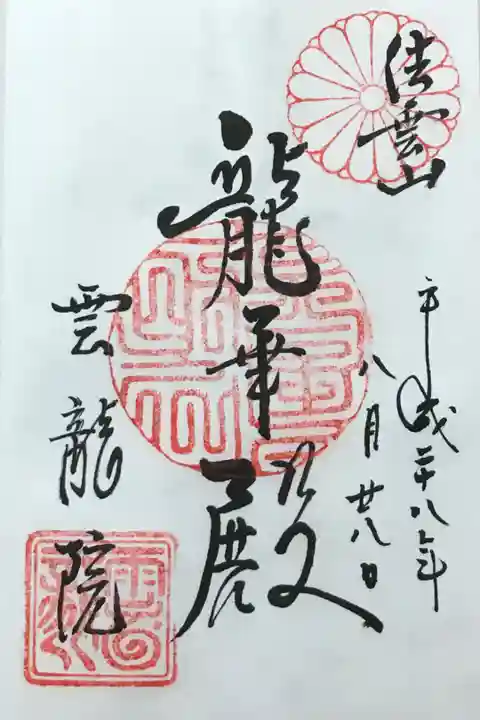 法雲山
平成二十八年
八月廿八日
龍華殿
雲龍院